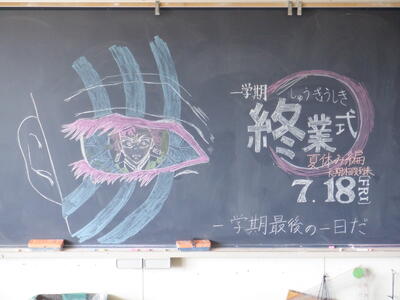 一学期
しゅうぎょうしき
終業式
夏休み編
7.18 [FRI]
一学期最後の一日だ